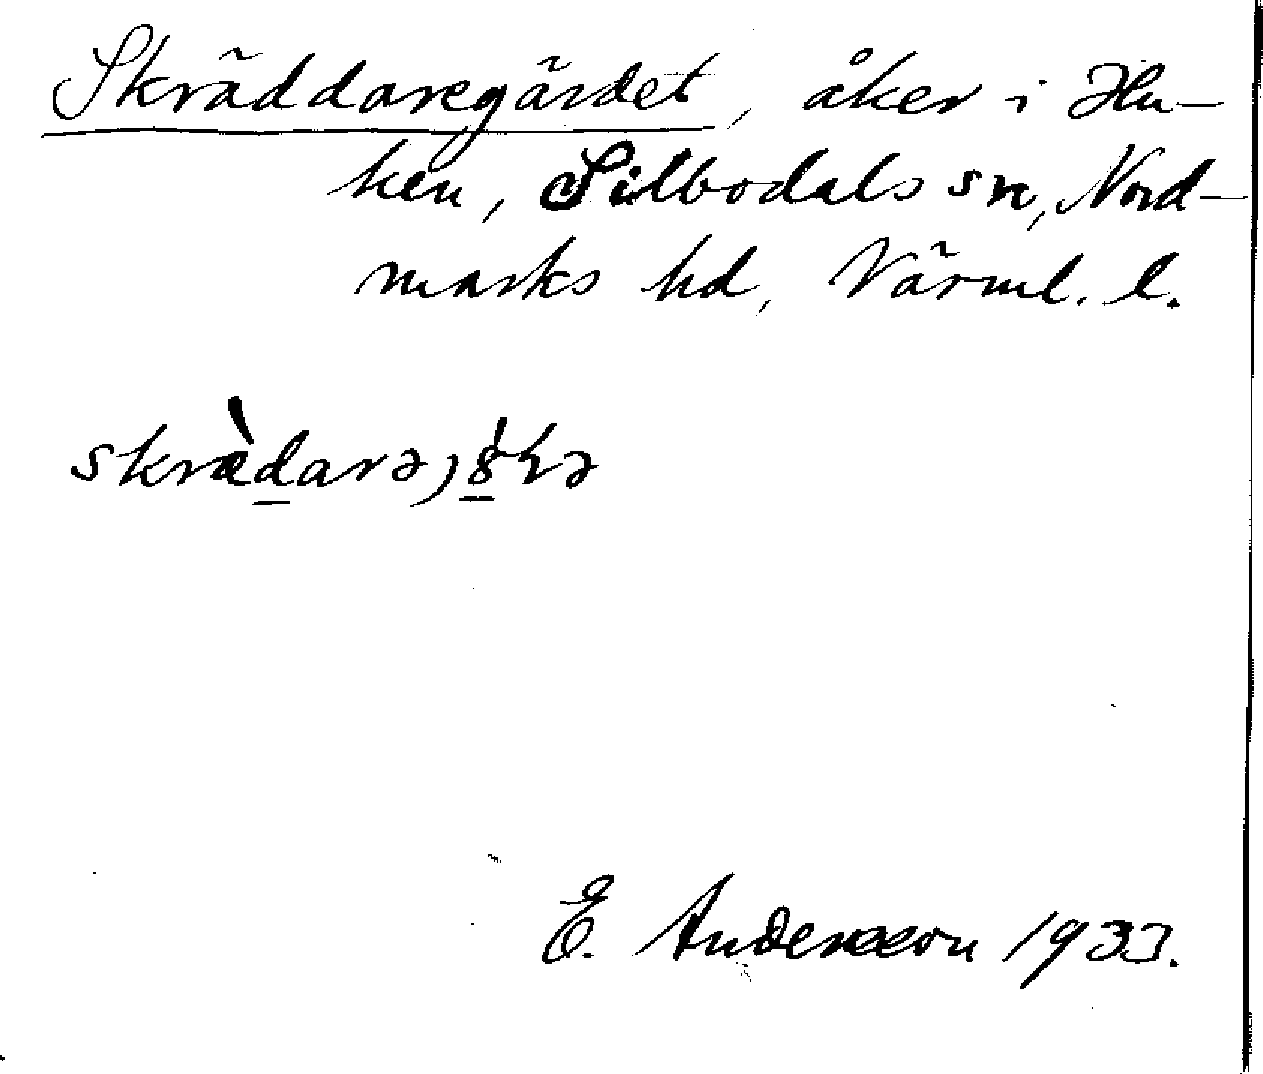 Skräddaregärdet, åker i Hu-
ken, Silbodals sn, Nord-
marks hd, Värml. l.
E. Andersson 1933.